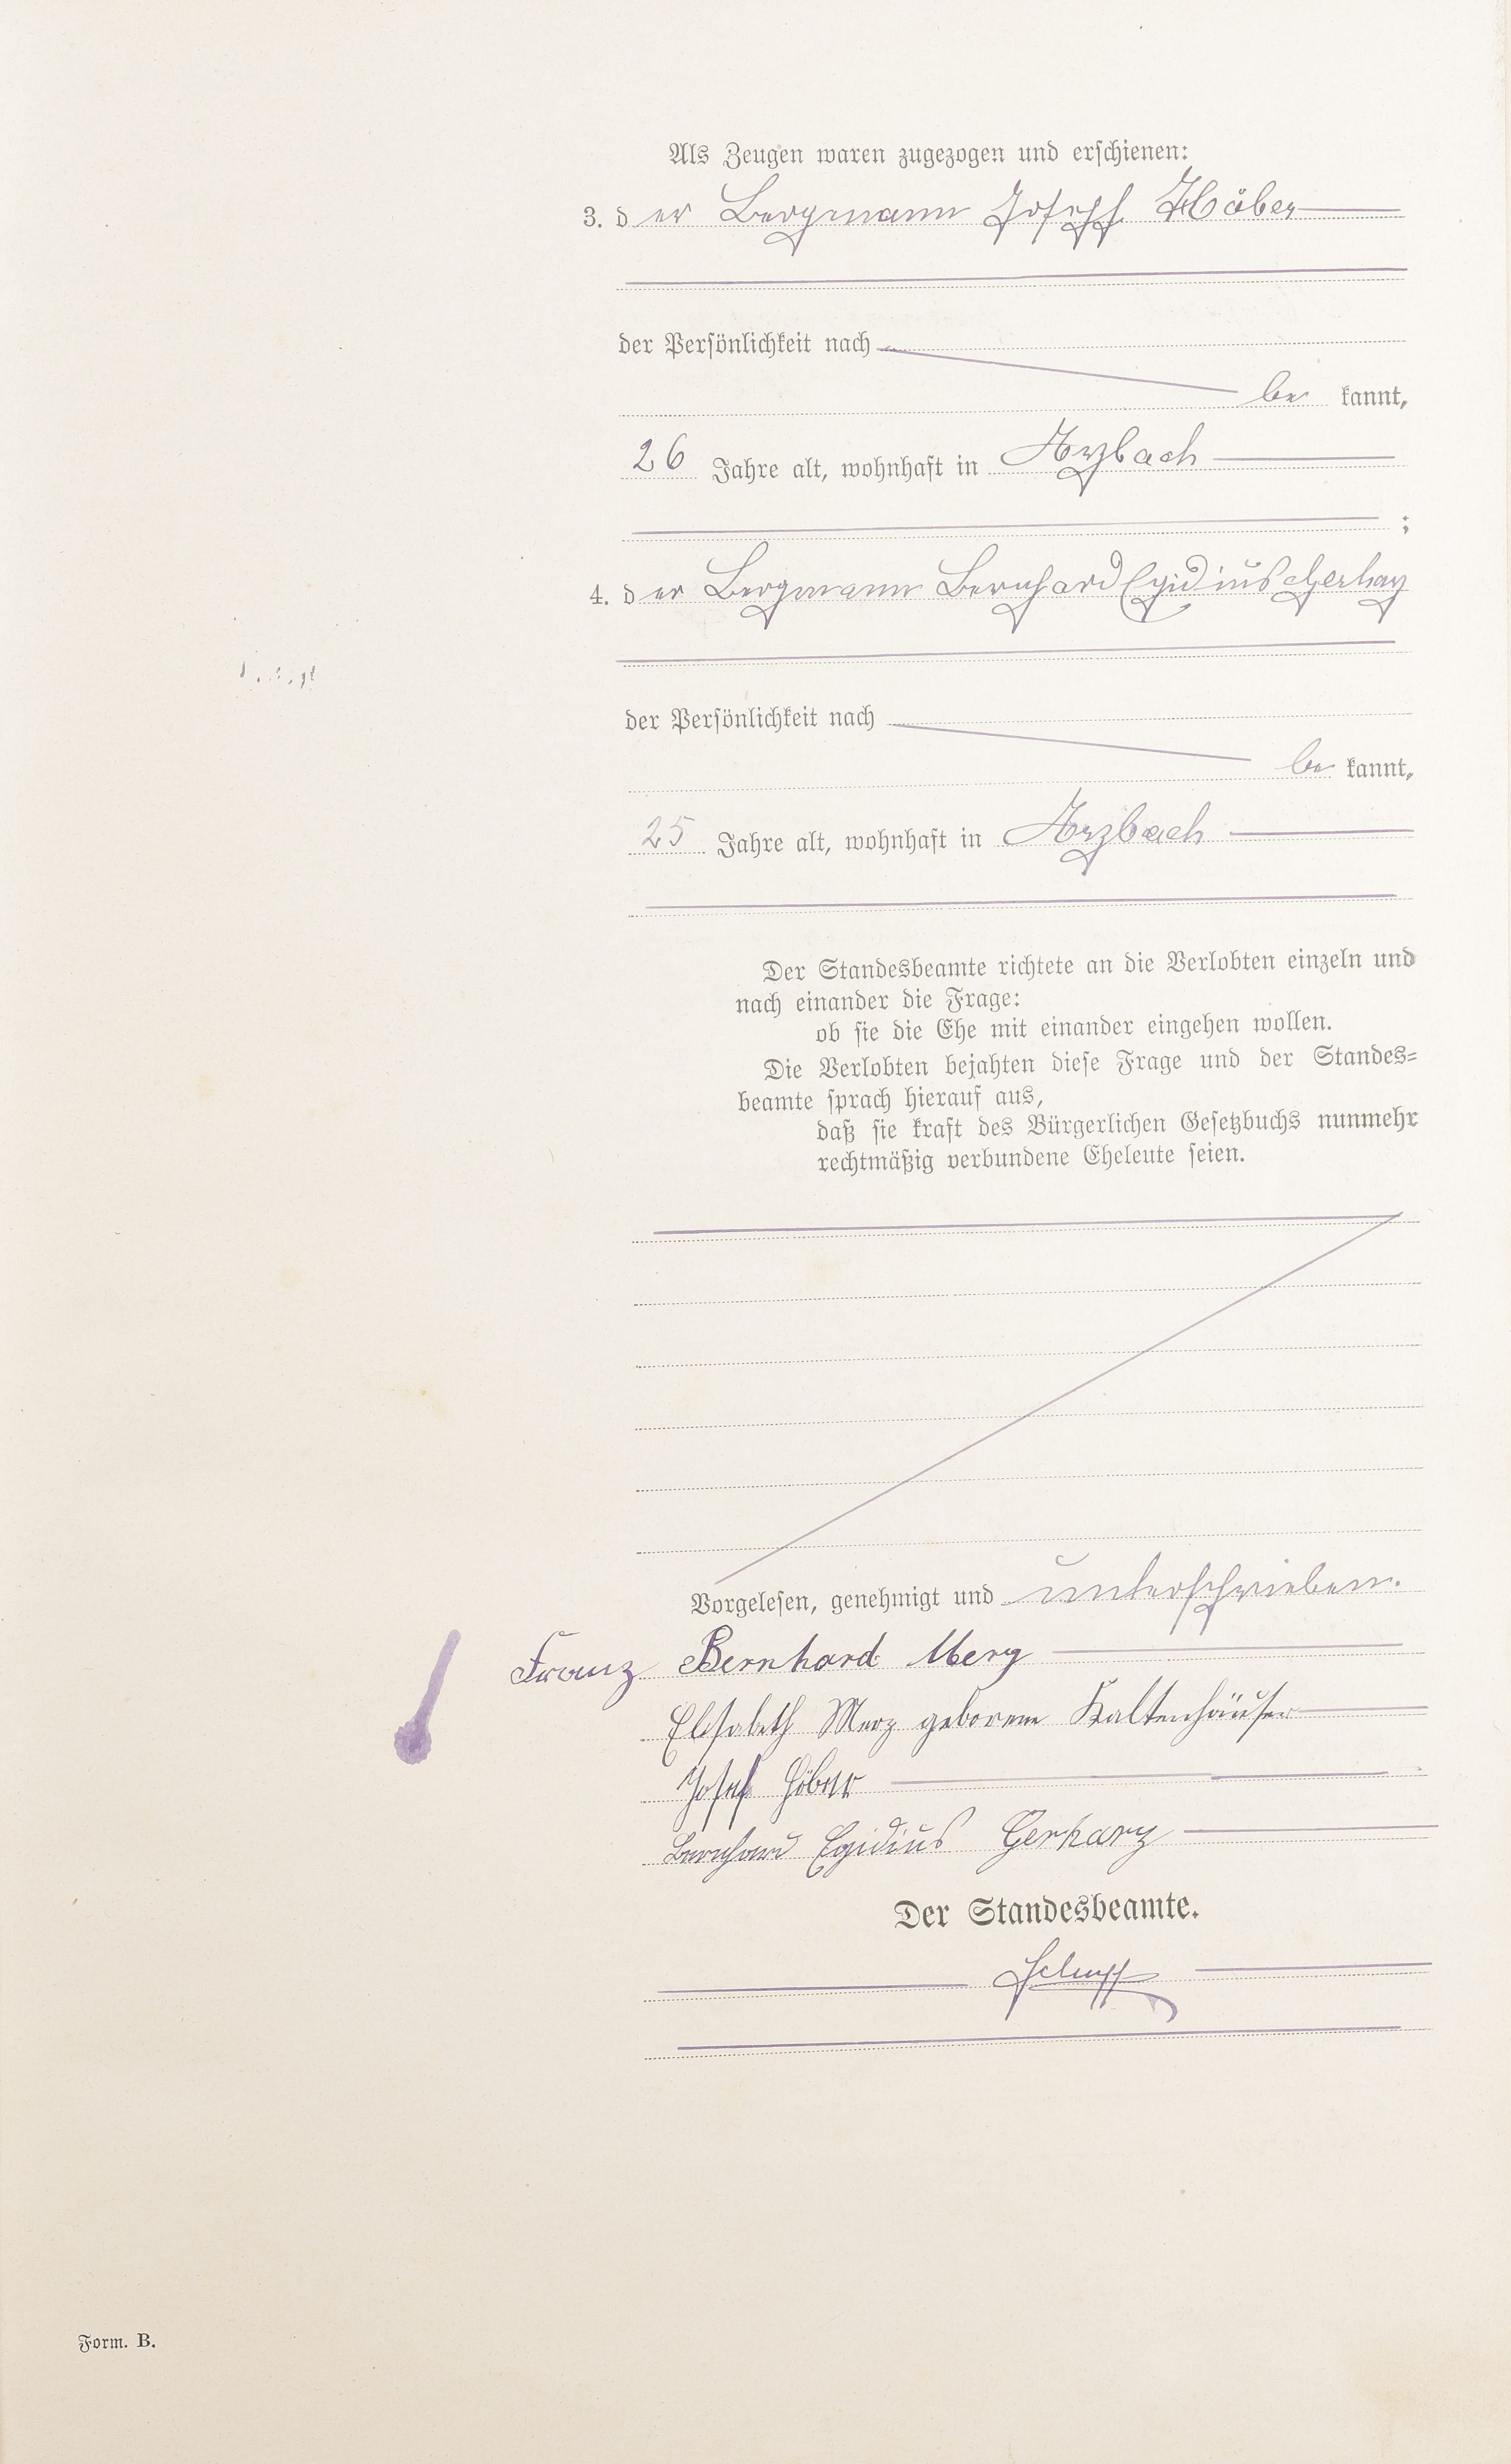 Als Zeugen waren zugezogen und erschienen:
3. der Bergmann Joseph Höber
der Persönlichkeit nach
be kannt,
26 Jahre alt, wohnhaft in Arzbach
;
4. der Bergmann Bernhard Egidius Gerharz
der Persönlichkeit nach
be kannt,
25 Jahre alt, wohnhaft in Arzbach
Der Standesbeamte richtete an die Verlobten einzeln und
nach einander die Frage:
ob sie die Ehe mit einander eingehen wollen.
Die Verlobten bejahten diese Frage und der Standes=
beamte sprach hierauf aus,
daß sie kraft des Bürgerlichen Gesetzbuchs nunmehr
rechtmäßig verbundene Eheleute seien.
Vorgelesen, genehmigt und unterschrieben.
Franz Bernhard Merz
Elisabeth Merz geborene Kaltenhäuser
Josef Höber
Bernhard Egidius Gerharz
Der Standesbeamte.
Form. B.